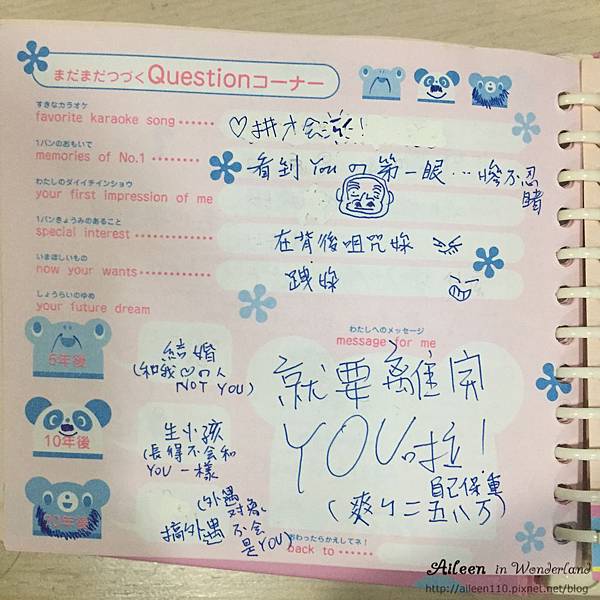 まだまだつづくQuestionコーナー
すきなカラオケ
favorite karaoke song ♡拼才会 !
1パンのおもいで
memories of No.1
看到You の第一眼…慘不忍睹
わたしのダイイチインショウ
your first impression of me
1パンきょうみのあること
special interest
在背後咀咒妳
いまほしいもの
now your wants
踐妳
しょうらいのゆめ
your future dream
5年後
結婚
(和我♡の人
NOT YOU)
10年後
生小孩
(長得不会和
YOU一樣
20年後
搞外遇
(外遇
対象
不会
是YOU)
わたしへのメッセージ
message for me
就要離開
YOU啦!
自己保重
(爽ㄉ二五八万)
おわったらかえしてネ!
back to
Aileen in Wonderland
http://aileen110.pixnet.net/blog